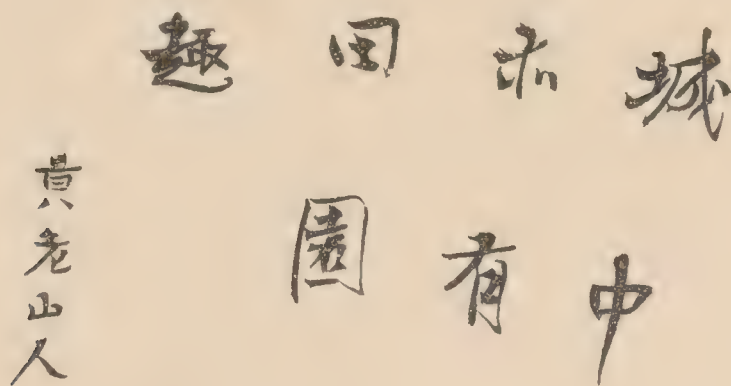 城中
亦有
田園
趣
貢老山人